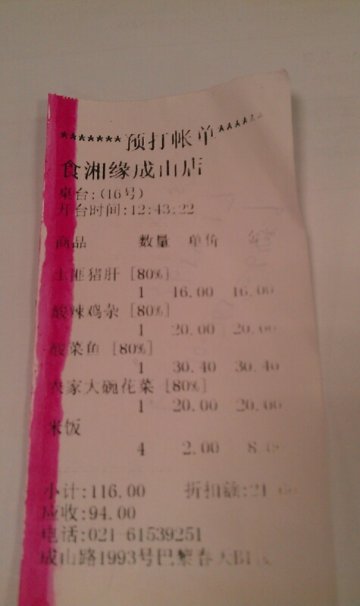 *******预打帐单******
食湘缘成山店
桌台:(16号)
开台时间:12:43:22
商品 数量 单价
生焗猪肝 [80%]
1 16.00 16.00
酸辣鸡杂 [80%]
1 20.00 20.00
酸菜鱼 [80%]
1 30.40 30.40
农家大碗花菜 [80%]
1 20.00 20.00
米饭
4 2.00
小计:116.00 折扣额:21
应收:94.00
电话:021-61539251
成山路1993号巴黎春天B1